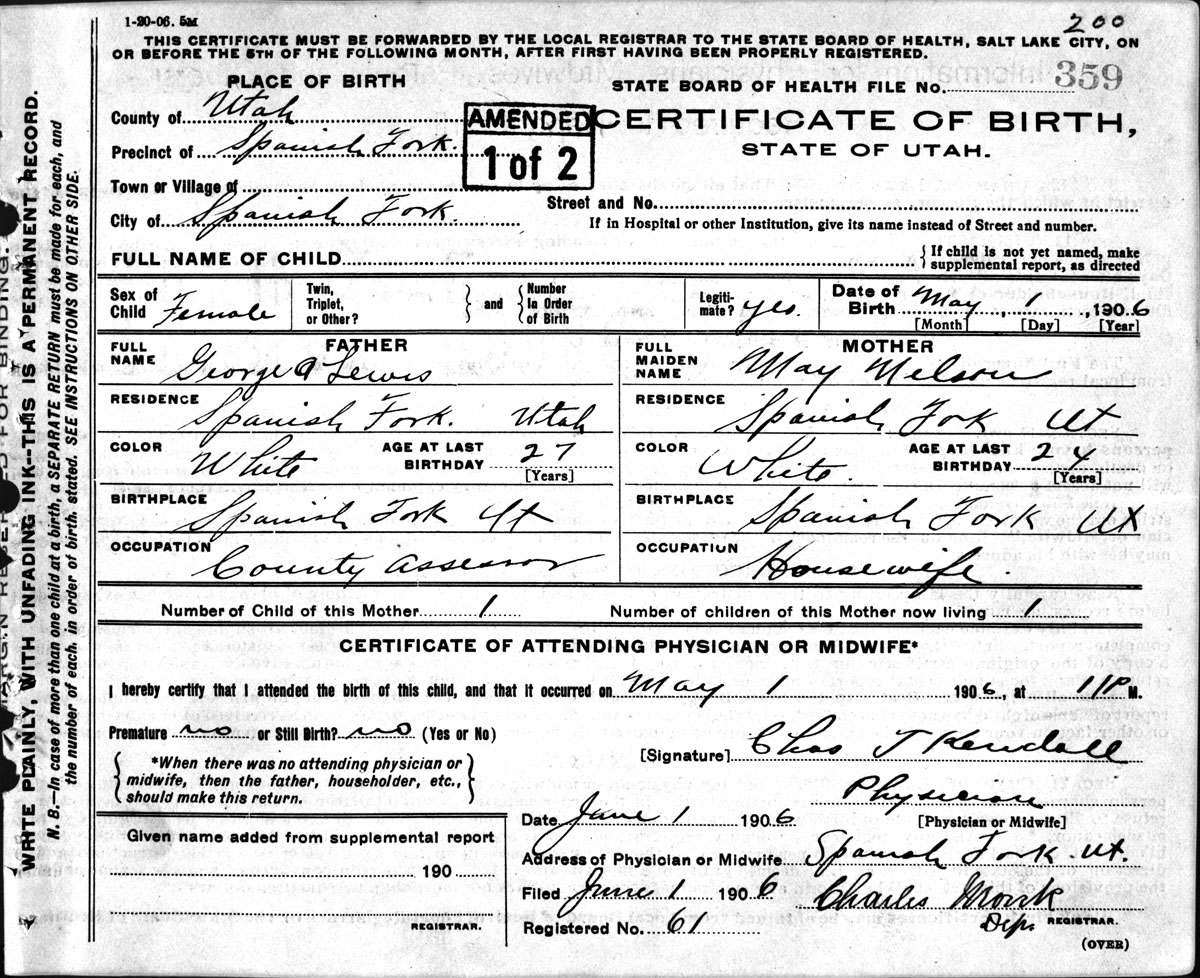 1-20-06. 5M
200
THIS CERTIFICATE MUST BE FORWARDED BY THE LOCAL REGISTRAR TO THE STATE BOARD OF HEALTH, SALT LAKE CITY, ON
OR BEFORE THE 5TH OF THE FOLLOWING MONTH, AFTER FIRST HAVING BEEN PROPERLY REGISTERED.
PLACE OF BIRTH
STATE BOARD OF HEALTH FILE No. 359
County of Utah
AMENDED
1 of 2
CERTIFICATE OF BIRTH,
STATE OF UTAH.
Precinct of Spanish Fork.
Town or Village of
City of Spanish Fork.
Street and No.
If in Hospital or other Institution, give its name instead of Street and number.
FULL NAME OF CHILD
{ If child is not yet named, make
supplemental report, as directed
Sex of Child Female
Twin, Triplet, or Other?
} and {
Number In Order of Birth
Legiti-mate? yes
Date of Birth May, 1, 1906
[Month] [Day] [Year]
FATHER
FULL NAME George A Lewis
RESIDENCE Spanish Fork. Utah
COLOR White
AGE AT LAST BIRTHDAY 27
[Years]
BIRTHPLACE Spanish Fork Ut
OCCUPATION County Assessor
MOTHER
FULL MAIDEN NAME May Nelson
RESIDENCE Spanish Fork Ut
COLOR White.
AGE AT LAST BIRTHDAY 24
[Years]
BIRTHPLACE Spanish Fork Ut
OCCUPATION Housewife.
Number of Child of this Mother 1
Number of children of this Mother now living 1
CERTIFICATE OF ATTENDING PHYSICIAN OR MIDWIFE*
I hereby certify that I attended the birth of this child, and that it occurred on May 1 1906, at 11 P M.
Premature no or Still Birth? no (Yes or No)
{ *When there was no attending physician or
midwife, then the father, householder, etc.,
should make this return. }
[Signature] Chas T Kendall
Physician
[Physician or Midwife]
Date June 1 1906
Address of Physician or Midwife Spanish Fork Ut.
Filed June 1 1906
Charles Monk
Dep. REGISTRAR.
Registered No. 61
(OVER)
Given name added from supplemental report
190
REGISTRAR.
MARGIN RESERVED FOR BINDING.
WRITE PLAINLY, WITH UNFADING INK--THIS IS A PERMANENT RECORD.
N. B.—In case of more than one child at a birth, a SEPARATE RETURN must be made for each, and
the number of each, in order of birth, stated. SEE INSTRUCTIONS ON OTHER SIDE.